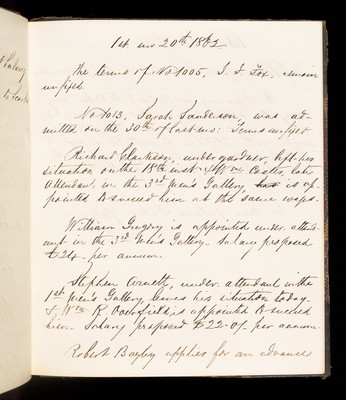 1st mo 20th 1862
The terms of No 1005, J. F. Fox, remain
unfixed.
No 1013, Sarah Sanderson, was ad-
mitted on the 30th of last mo: Terms unfixed
Richard Clarkson, under gardner, left his
situation on the 18th inst & Wm Coates, late
Attendant, in the 3rd Men's Gallery, has is ap-
pointed to succeed him at the same wages.
William Gregory is appointed under attend-
ant in the 3rd Men's Gallery - Salary proposed
£24 - per annum.
Stephen under attendant in the
1st Men's Gallery leaves his situation today
& Wm K is appointed to succeed
him - Salary proposed £22-0/- per annum.
Robert Bagley applies for an advance
Salary